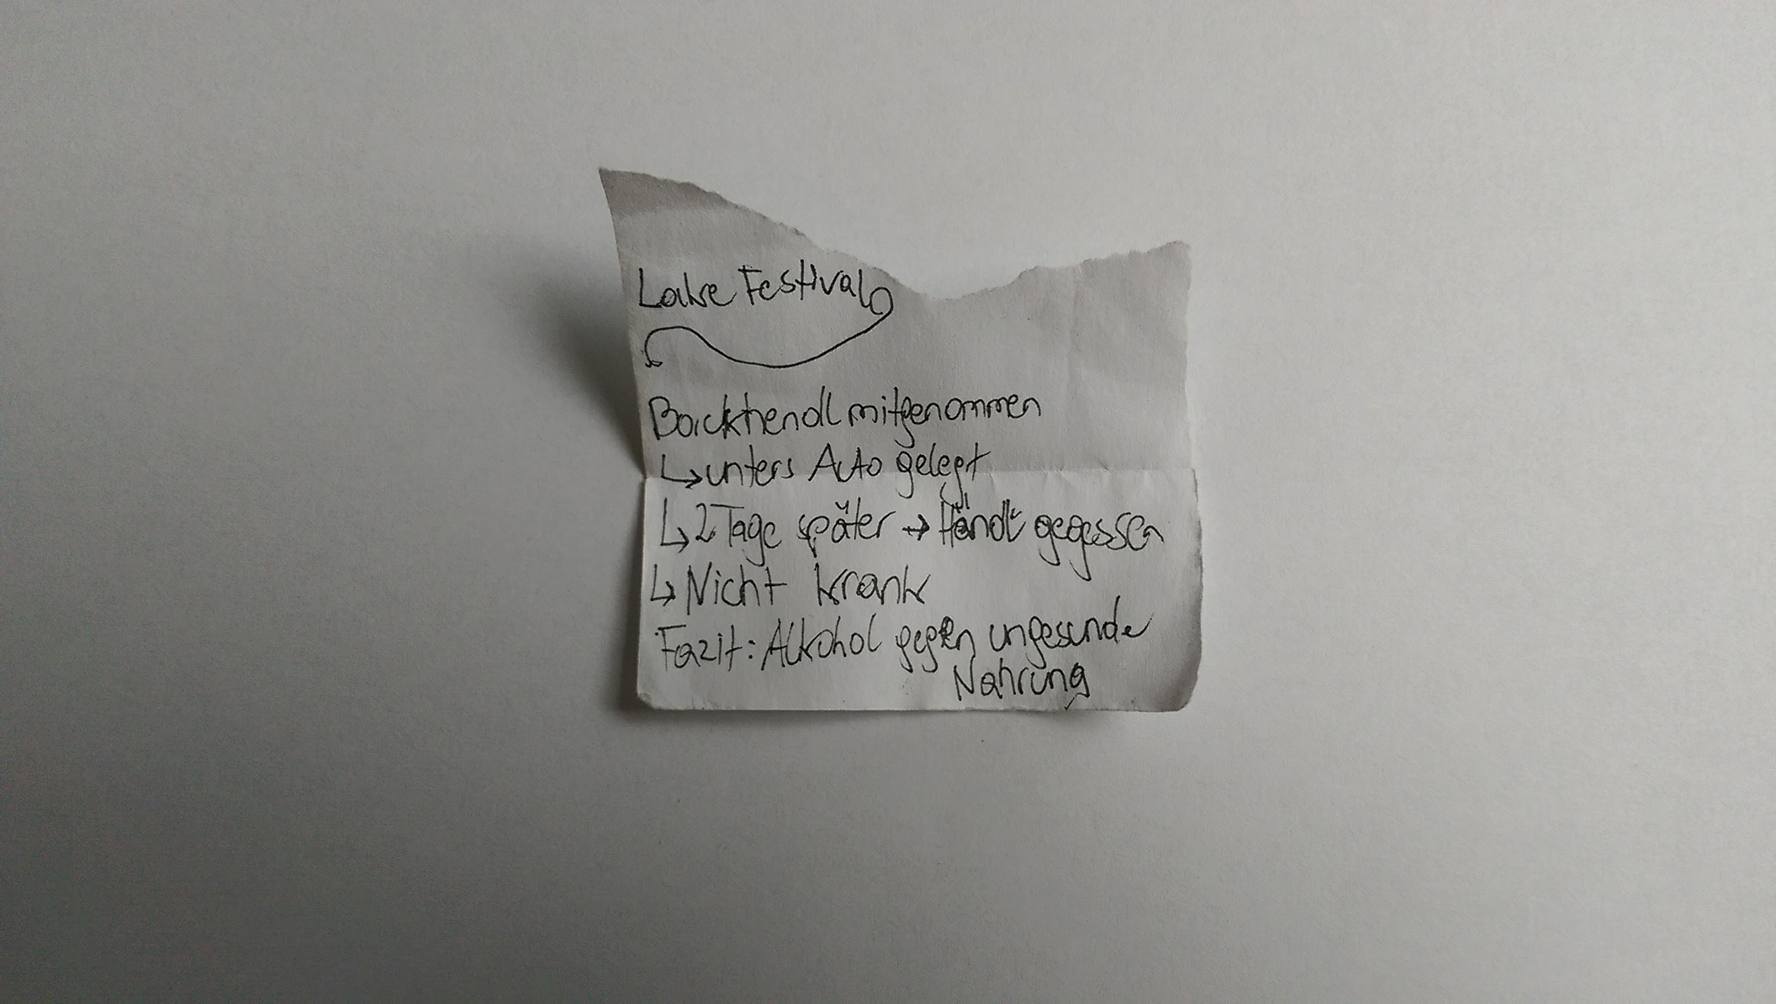 Lake Festival
Backhendl mitgenommen
↳ unters Auto gelegt
↳ 2 Tage später → Händl gegessen
↳ Nicht krank
Fazit: Alkohol gegen ungesunde
Nahrung